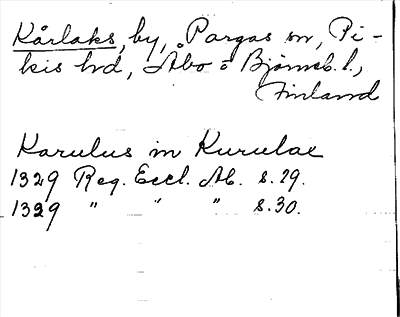 Kårlaks, by, Pargas sn, Pi-
kis hd, Åbo o Björneb. l.,
Finland
Karulus in Kurulax
1329 Reg. Eccl. Ab. s. 29.
1329 " " " s. 30.